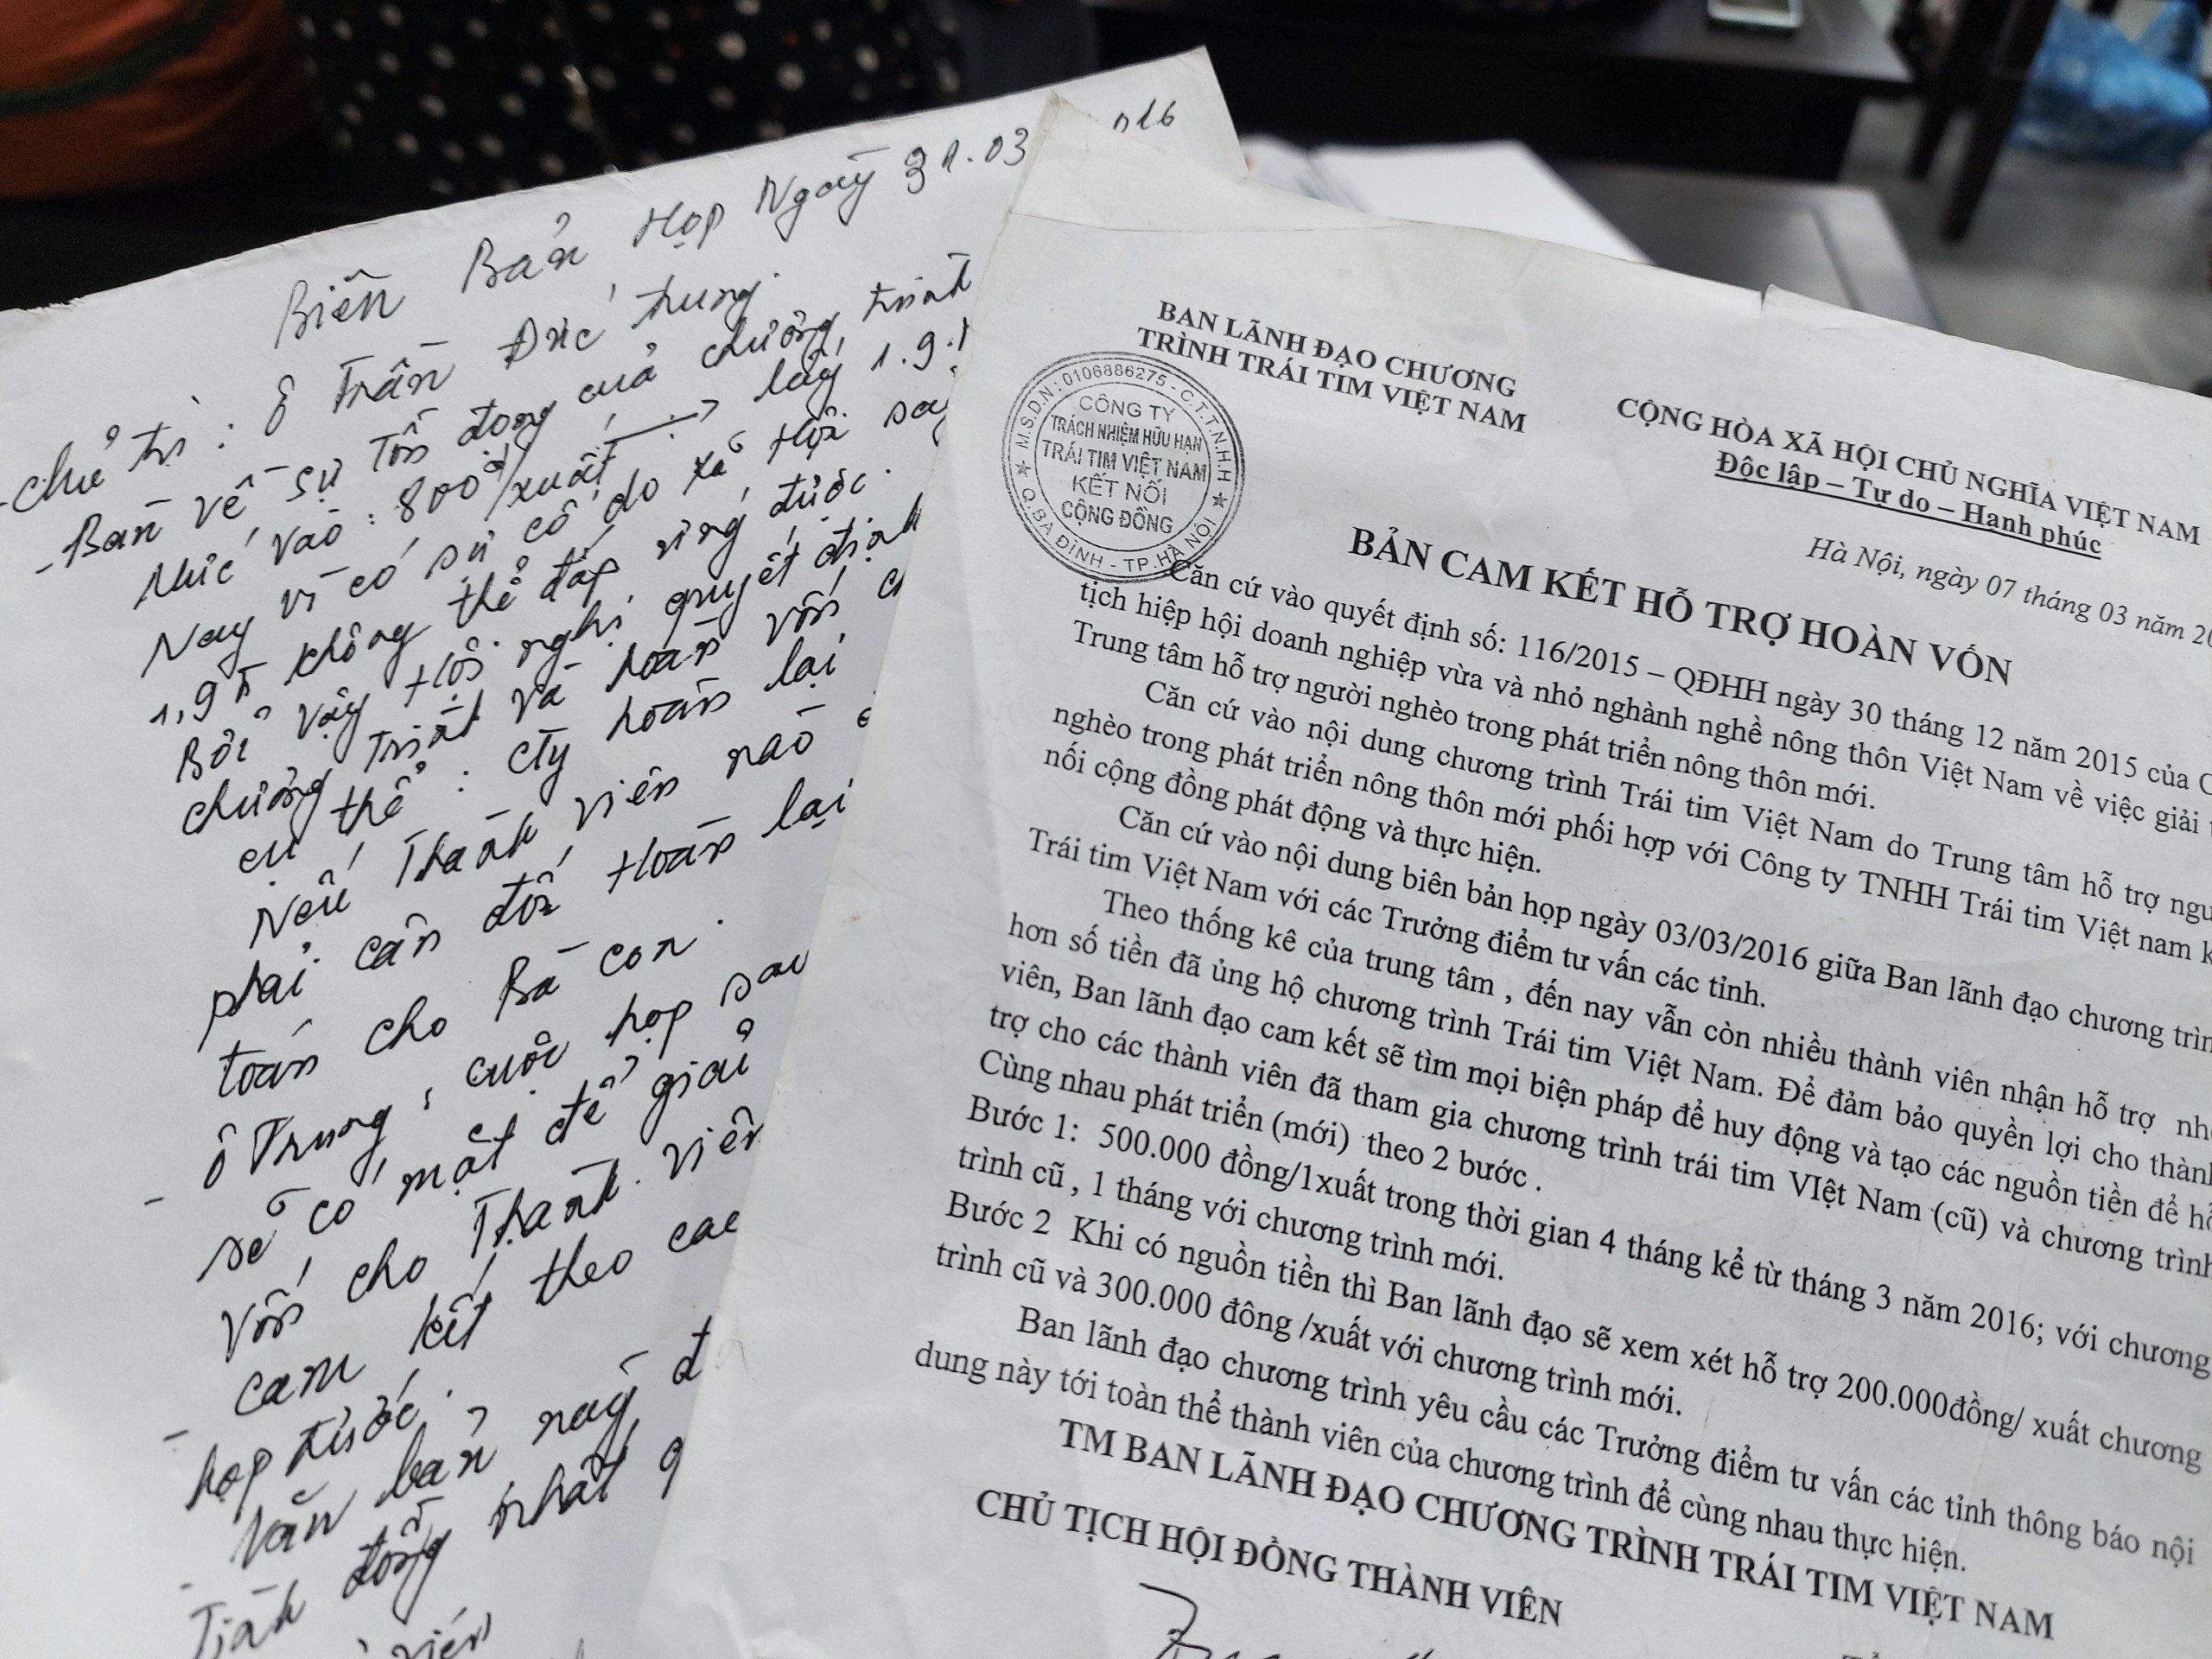 Biên Bản Họp Ngày 31.03
016
- Chủ trì : Ô Trần Đức Trung.
- Bàn về sự tồn đọng của chương trình
Mức vào : 800đ/xuất lấy 1.9.
Nay vì có sự cố do xã Hội
1,9tr không thể đáp ứng được.
Bởi vậy Hội nghị quyết định
chương trình và hoàn vốn
cụ thể : cty hoàn lại
Nếu Thành viên nào
phải cân đối Hoàn lại
toán cho Bà con.
- Ô Trung, cuộc họp sau
sẽ có mặt để giải
vốn cho Thành viên
- cam kết theo các
họp trước.
- Văn bản này đ
Tình đồng nhất
viên
BAN LÃNH ĐẠO CHƯƠNG
TRÌNH TRÁI TIM VIỆT NAM
M.S.D.N: 0106886275 - C.T.T.N.H.H
CÔNG TY
TRÁCH NHIỆM HỮU HẠN
TRÁI TIM VIỆT NAM
KẾT NỐI
CỘNG ĐỒNG
Q.BA ĐÌNH - TP.HÀ NỘI
CỘNG HÒA XÃ HỘI CHỦ NGHĨA VIỆT NAM
Độc lập – Tự do – Hạnh phúc
Hà Nội, ngày 07 tháng 03 năm 20
BẢN CAM KẾT HỖ TRỢ HOÀN VỐN
Căn cứ vào quyết định số: 116/2015 – QĐHH ngày 30 tháng 12 năm 2015 của C
tịch hiệp hội doanh nghiệp vừa và nhỏ nghành nghề nông thôn Việt Nam về việc giải
Trung tâm hỗ trợ người nghèo trong phát triển nông thôn mới.
Căn cứ vào nội dung chương trình Trái tim Việt Nam do Trung tâm hỗ trợ ngư
nghèo trong phát triển nông thôn mới phối hợp với Công ty TNHH Trái tim Việt nam k
nối cộng đồng phát động và thực hiện.
Căn cứ vào nội dung biên bản họp ngày 03/03/2016 giữa Ban lãnh đạo chương trìn
Trái tim Việt Nam với các Trưởng điểm tư vấn các tỉnh.
Theo thống kê của trung tâm , đến nay vẫn còn nhiều thành viên nhận hỗ trợ nh
hơn số tiền đã ủng hộ chương trình Trái tim Việt Nam. Để đảm bảo quyền lợi cho thành
viên, Ban lãnh đạo cam kết sẽ tìm mọi biện pháp để huy động và tạo các nguồn tiền để hỗ
trợ cho các thành viên đã tham gia chương trình trái tim VIệt Nam (cũ) và chương trình
Cùng nhau phát triển (mới) theo 2 bước .
Bước 1: 500.000 đồng/1xuất trong thời gian 4 tháng kể từ tháng 3 năm 2016; với chương
trình cũ , 1 tháng với chương trình mới.
Bước 2 Khi có nguồn tiền thì Ban lãnh đạo sẽ xem xét hỗ trợ 200.000đồng/ xuất chương
trình cũ và 300.000 đông /xuất với chương trình mới.
Ban lãnh đạo chương trình yêu cầu các Trưởng điểm tư vấn các tỉnh thông báo nội
dung này tới toàn thể thành viên của chương trình để cùng nhau thực hiện.
TM BAN LÃNH ĐẠO CHƯƠNG TRÌNH TRÁI TIM VIỆT NAM
CHỦ TỊCH HỘI ĐỒNG THÀNH VIÊN